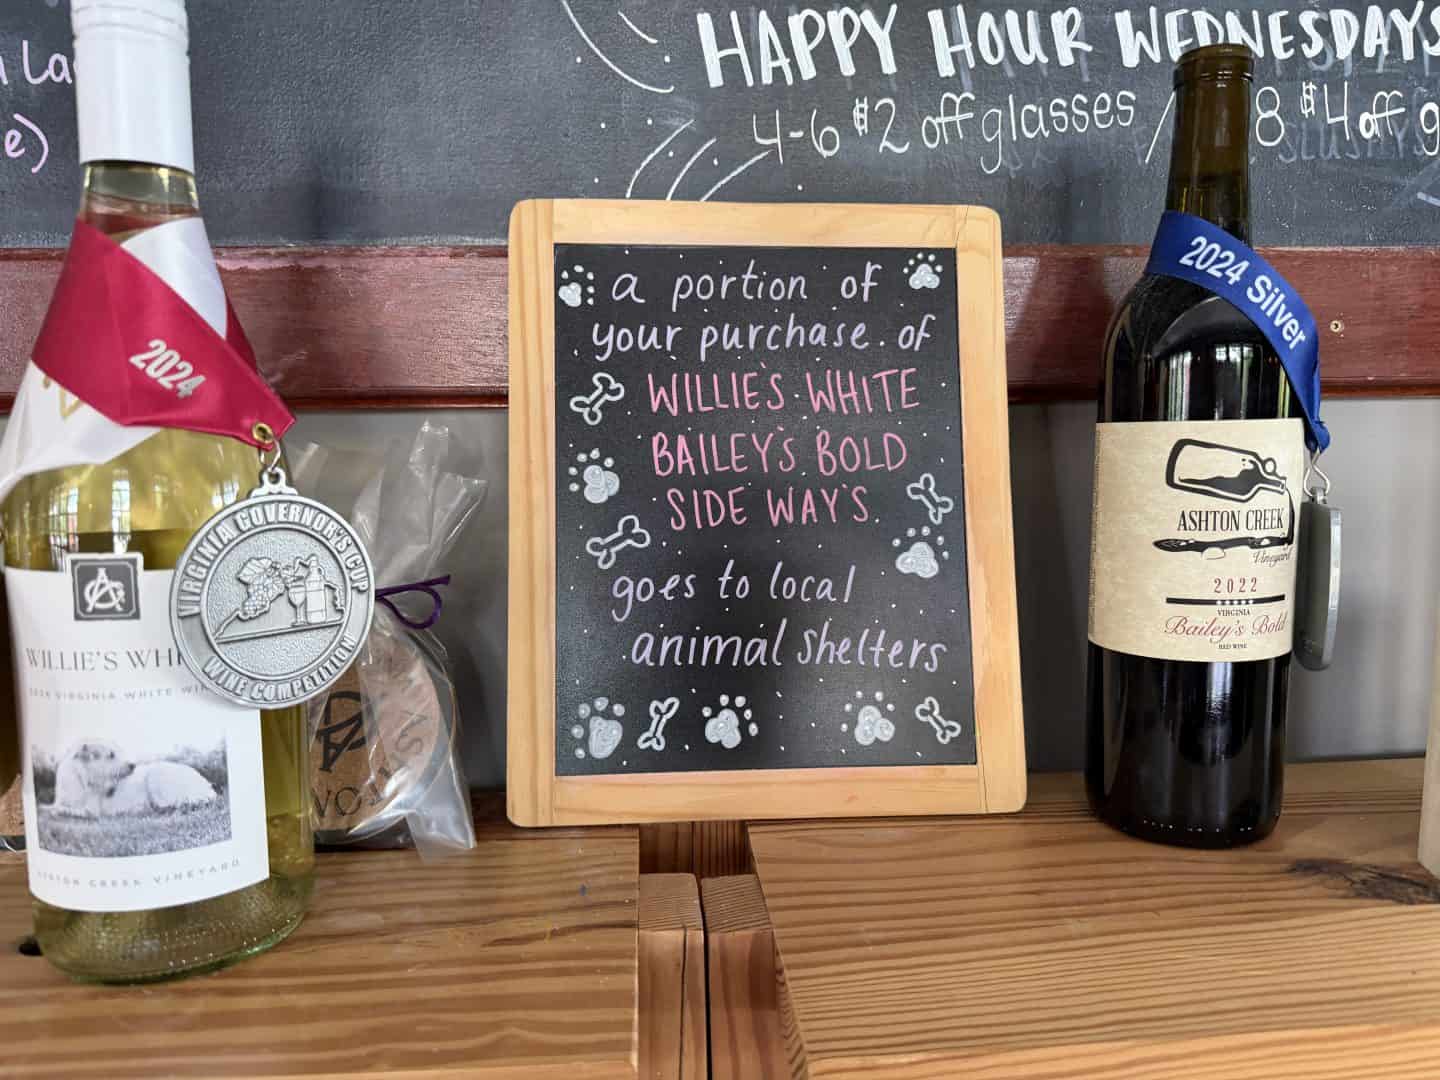 HAPPY HOUR WEDNESDAYS
4-6 $2 off glasses / 8 $4 off g
e)
a portion of
your purchase of
WILLIE'S WHITE
BAILEY'S BOLD
SIDE WAY'S
goes to local
animal shelters
2024
VIRGINIA GOVERNOR'S CUP
WINE COMPETITION
WILLIE'S WHI
VIRGINIA WHITE WIN
ASHTON CREEK VINEYARD
2024 Silver
ASHTON CREEK
Vineyard
2022
VIRGINIA
Bailey's Bold
RED WINE